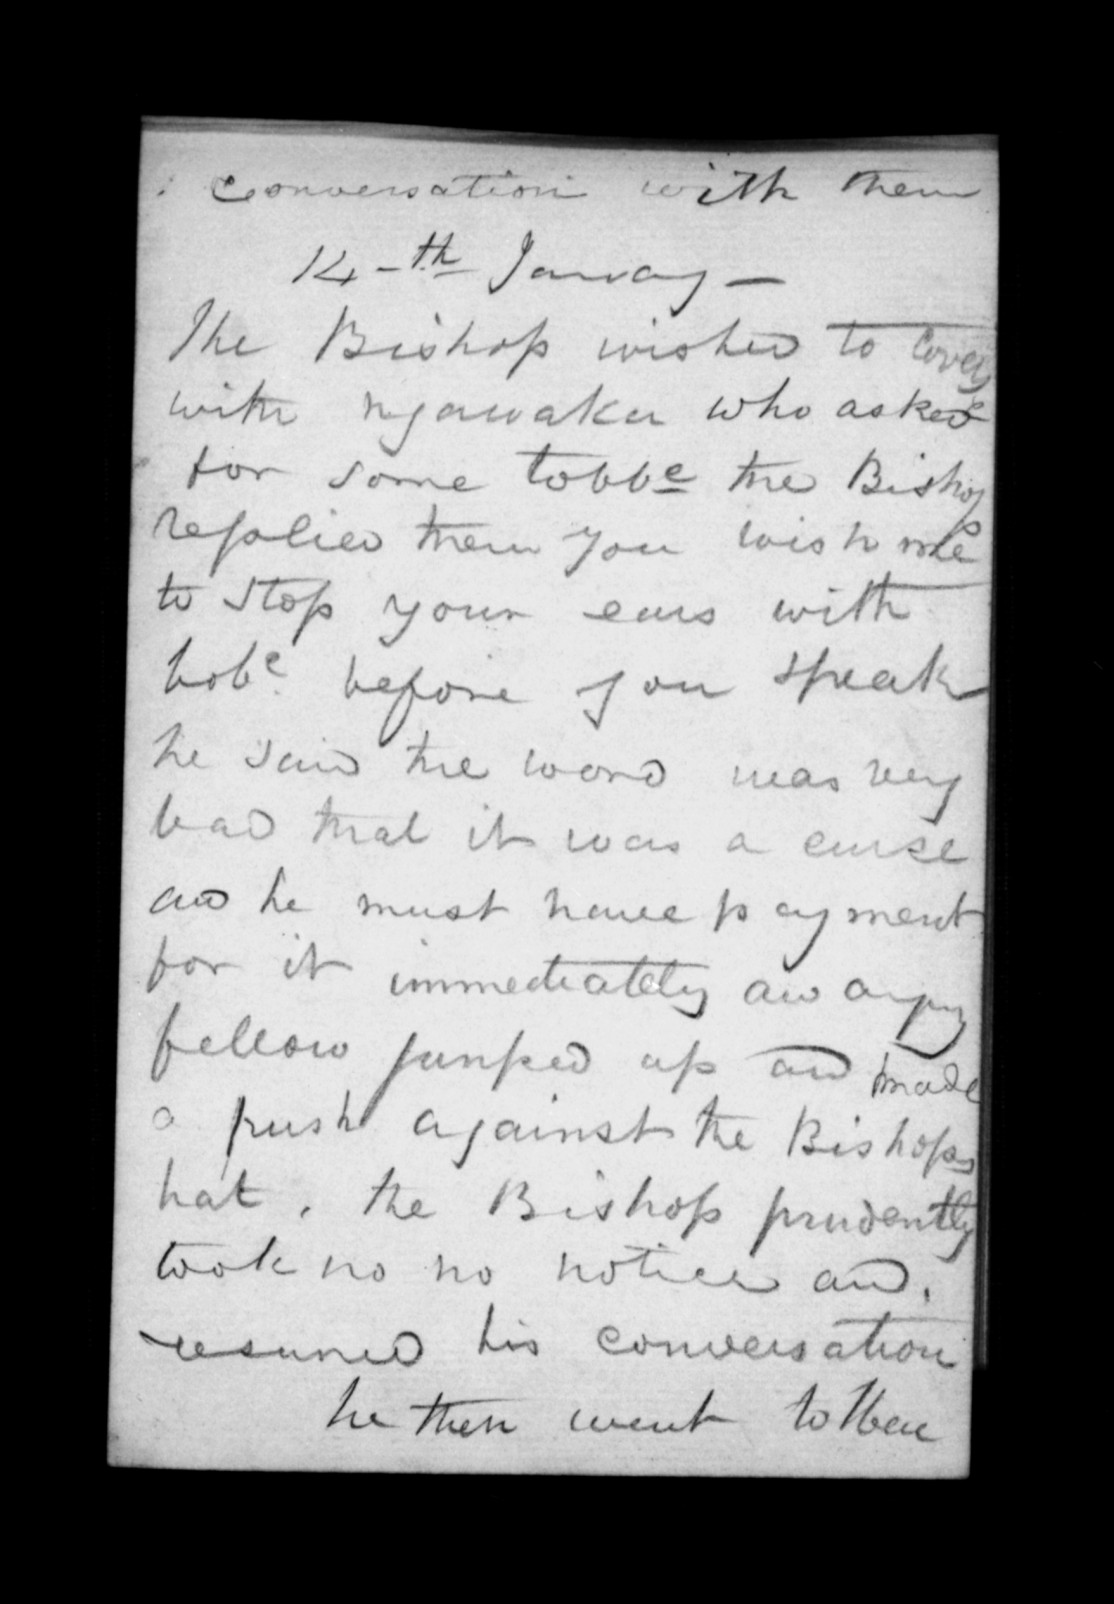 conversation with them
14-th January –
The Bishop wished to
with ngawaka who asked
for some tobbc the Bishop
replied then you wish me
to stop your ears with
tobc before you speak
he said the word was very
bad that it was a curse
and he must have payment
for it immediately an angry
fellow jumped up and made
a push against the Bishops
hat. the Bishop prudently
took no no notice and.
resumed his conversation
he then went to